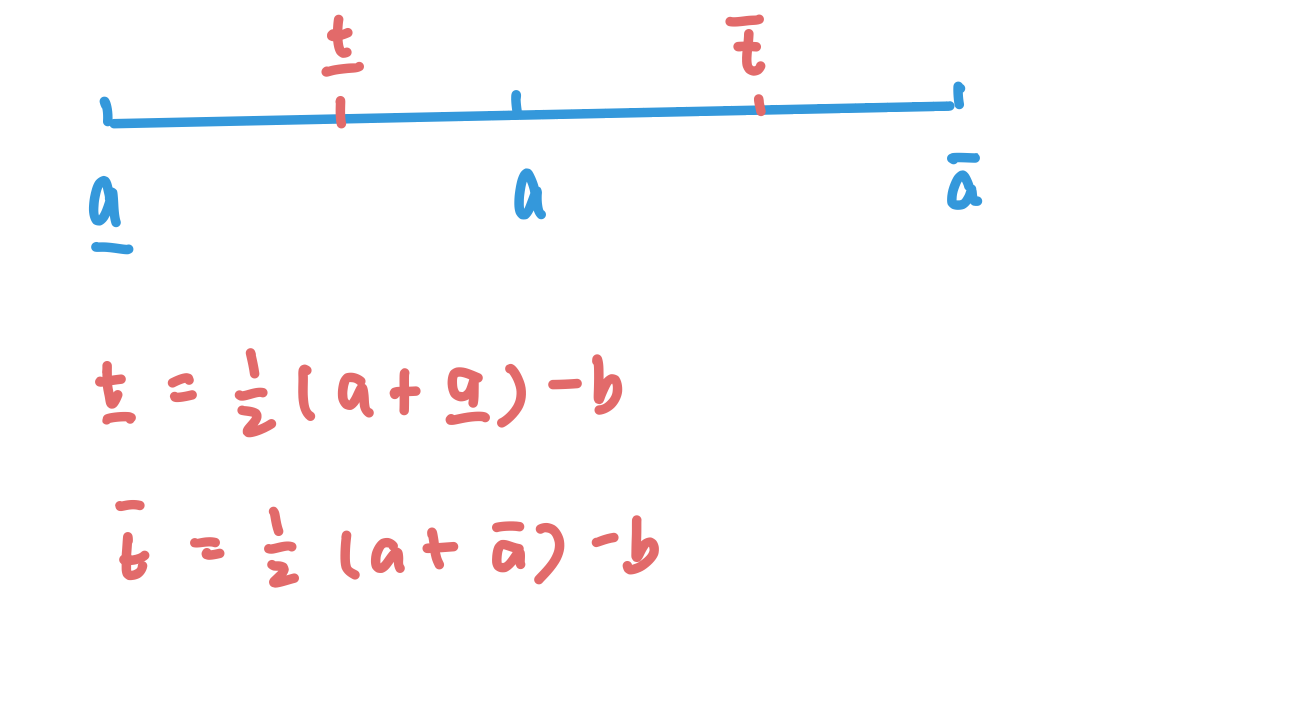 t̲ t̅
a̲ a a̅
t̲ = ½ (a + a̲) - b
t̅ = ½ (a + a̅) - b